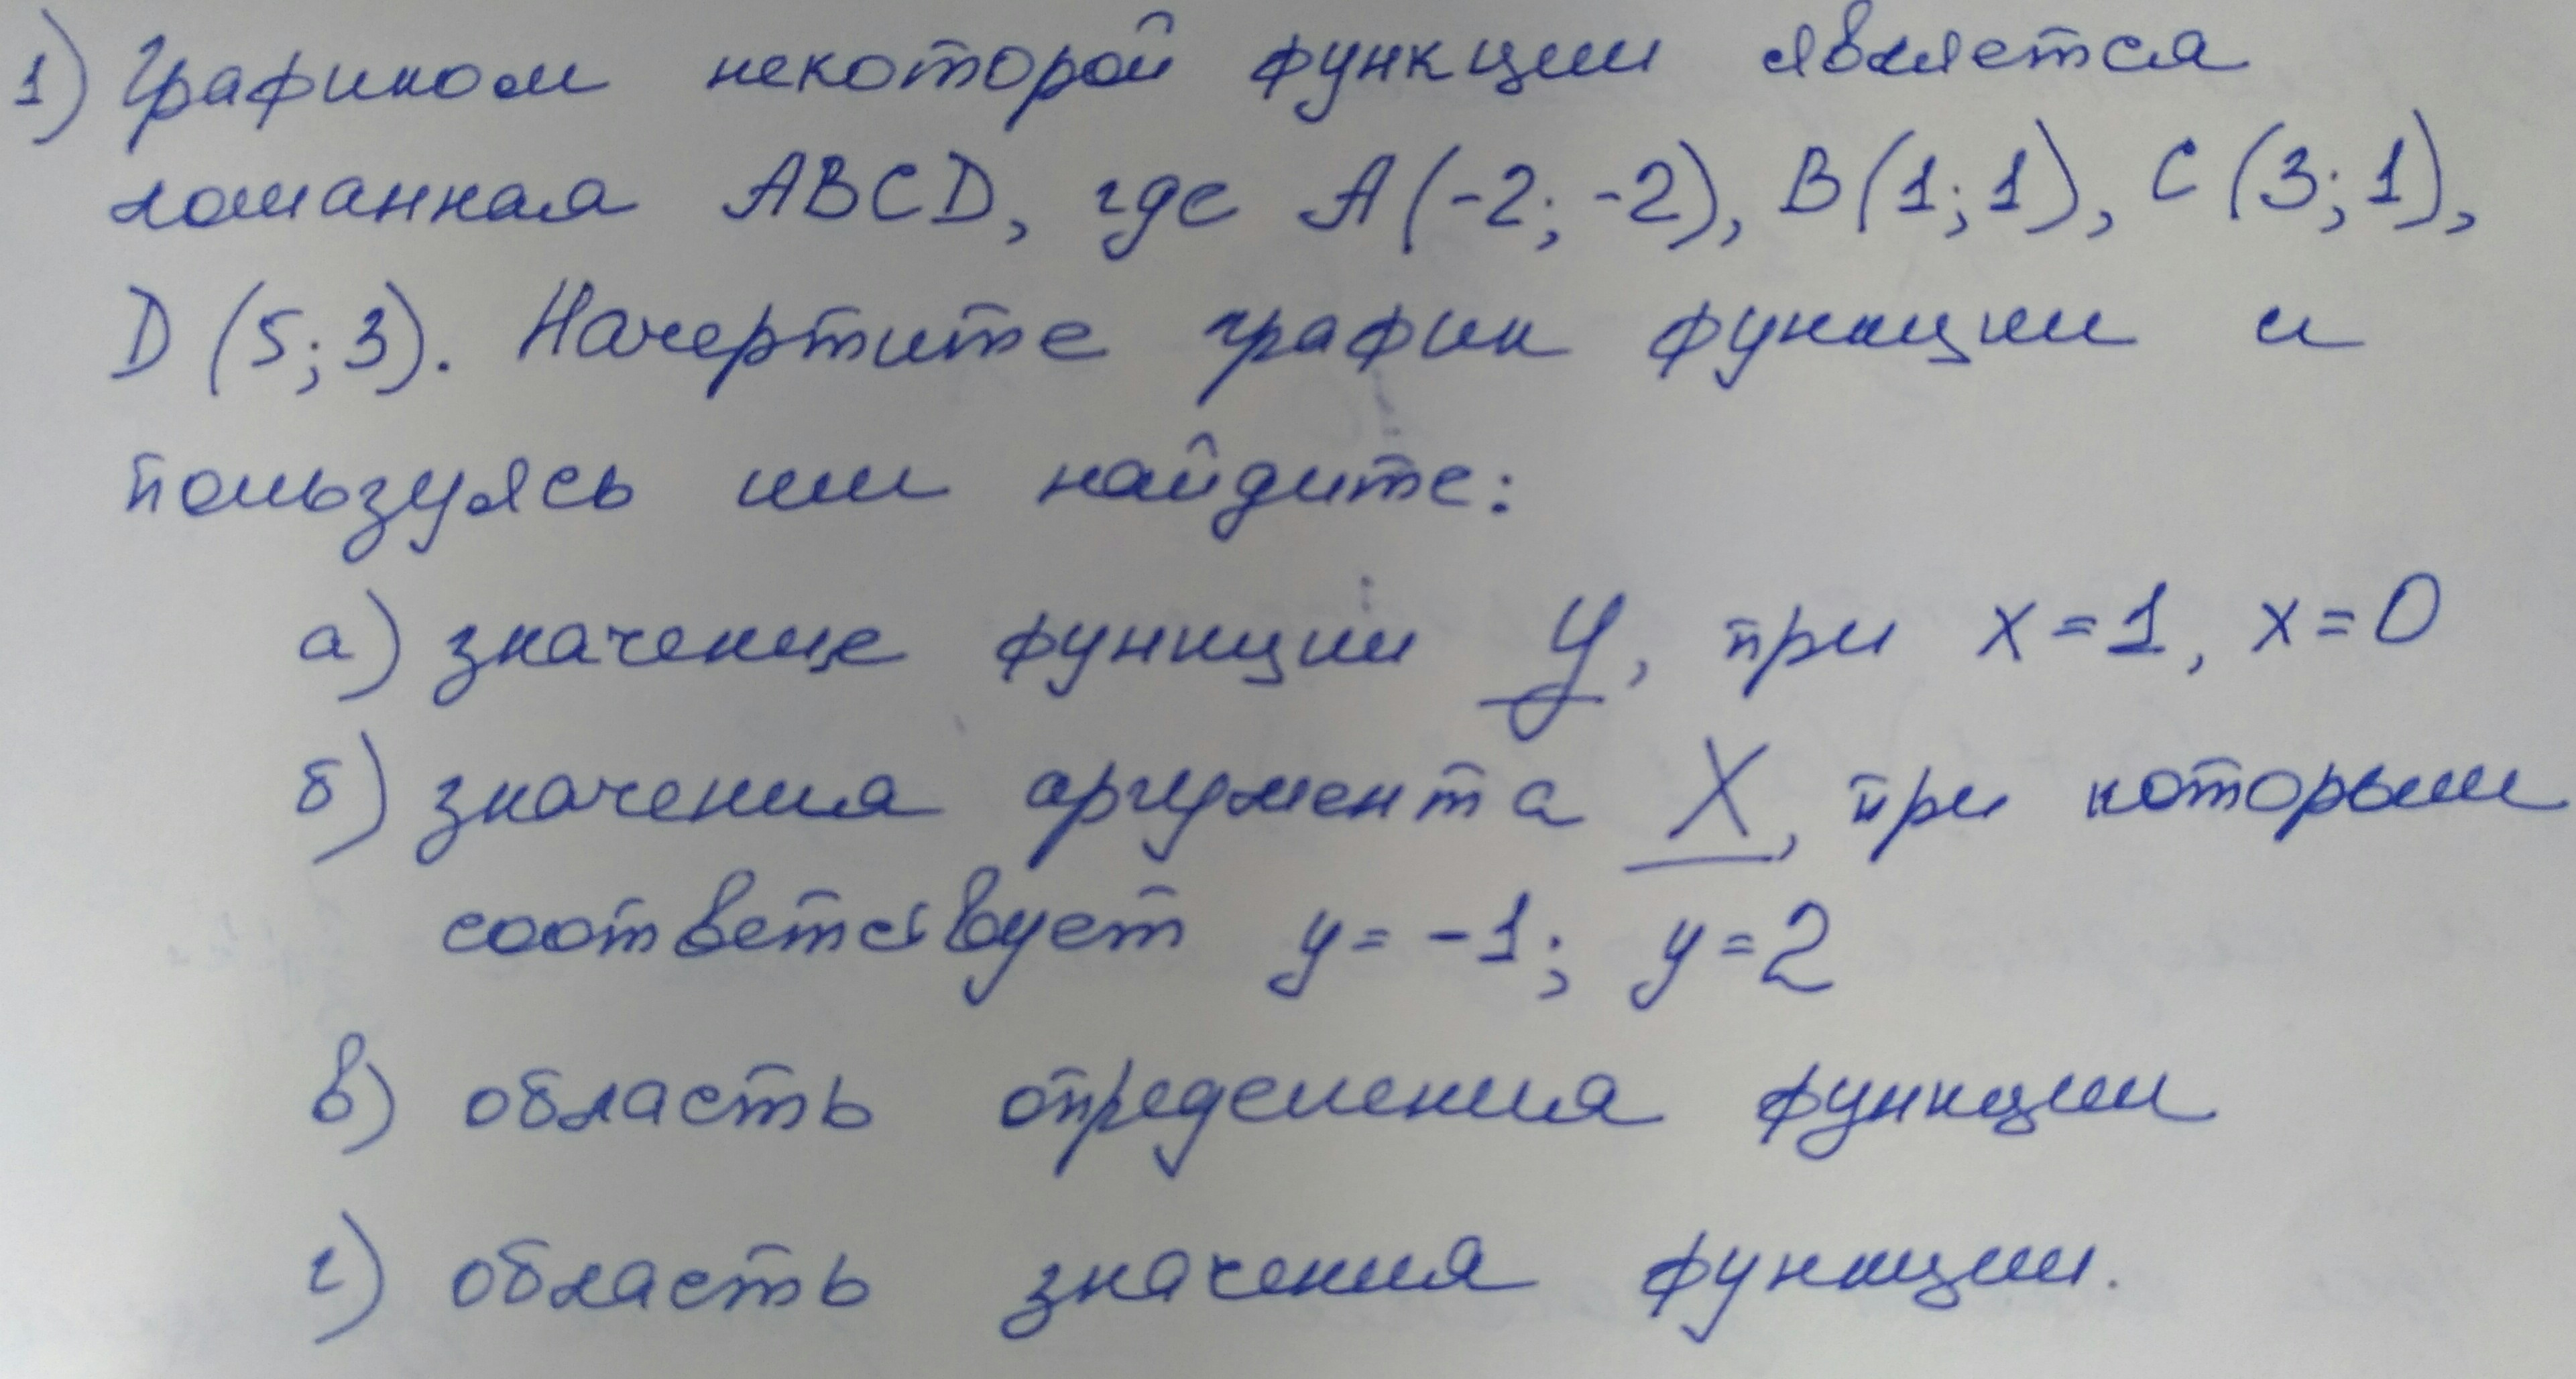 1) Графиком некоторой функции является
ломанная ABCD, где A(-2; -2), B(1; 1), C(3; 1),
D(5; 3). Начертите график функции и
пользуясь им найдите:
а) значение функции y, при x=1, x=0
б) значения аргумента X, при которым
соответствует y= -1; y=2
в) область определения функции
г) область значения функции.